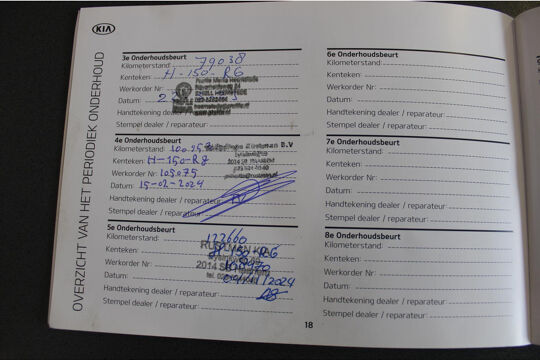 KIA
OVERZICHT VAN HET PERIODIEK ONDERHOUD
3e Onderhoudsbeurt
Kilometerstand: 79038
Kenteken: H-150-RG
Werkorder Nr:
Datum:
Handtekening dealer / reparateur:
Stempel dealer / reparateur:
4e Onderhoudsbeurt
Kilometerstand:
Kenteken: H-150-R8
Werkorder Nr: 105075
Datum: 15-02-2024
Handtekening dealer / reparateur:
Stempel dealer / reparateur:
B.V
5e Onderhoudsbeurt
Kilometerstand: 122660
Kenteken: RG
Werkorder Nr:
Datum: 2024
Handtekening dealer / reparateur:
Stempel dealer / reparateur:
2014
6e Onderhoudsbeurt
Kilometerstand:
Kenteken:
Werkorder Nr:
Datum:
Handtekening dealer / reparateur:
Stempel dealer / reparateur:
7e Onderhoudsbeurt
Kilometerstand:
Kenteken:
Werkorder Nr:
Datum:
Handtekening dealer / reparateur:
Stempel dealer / reparateur:
8e Onderhoudsbeurt
Kilometerstand:
Kenteken:
Werkorder Nr:
Datum:
Handtekening dealer / reparateur:
Stempel dealer / reparateur:
18